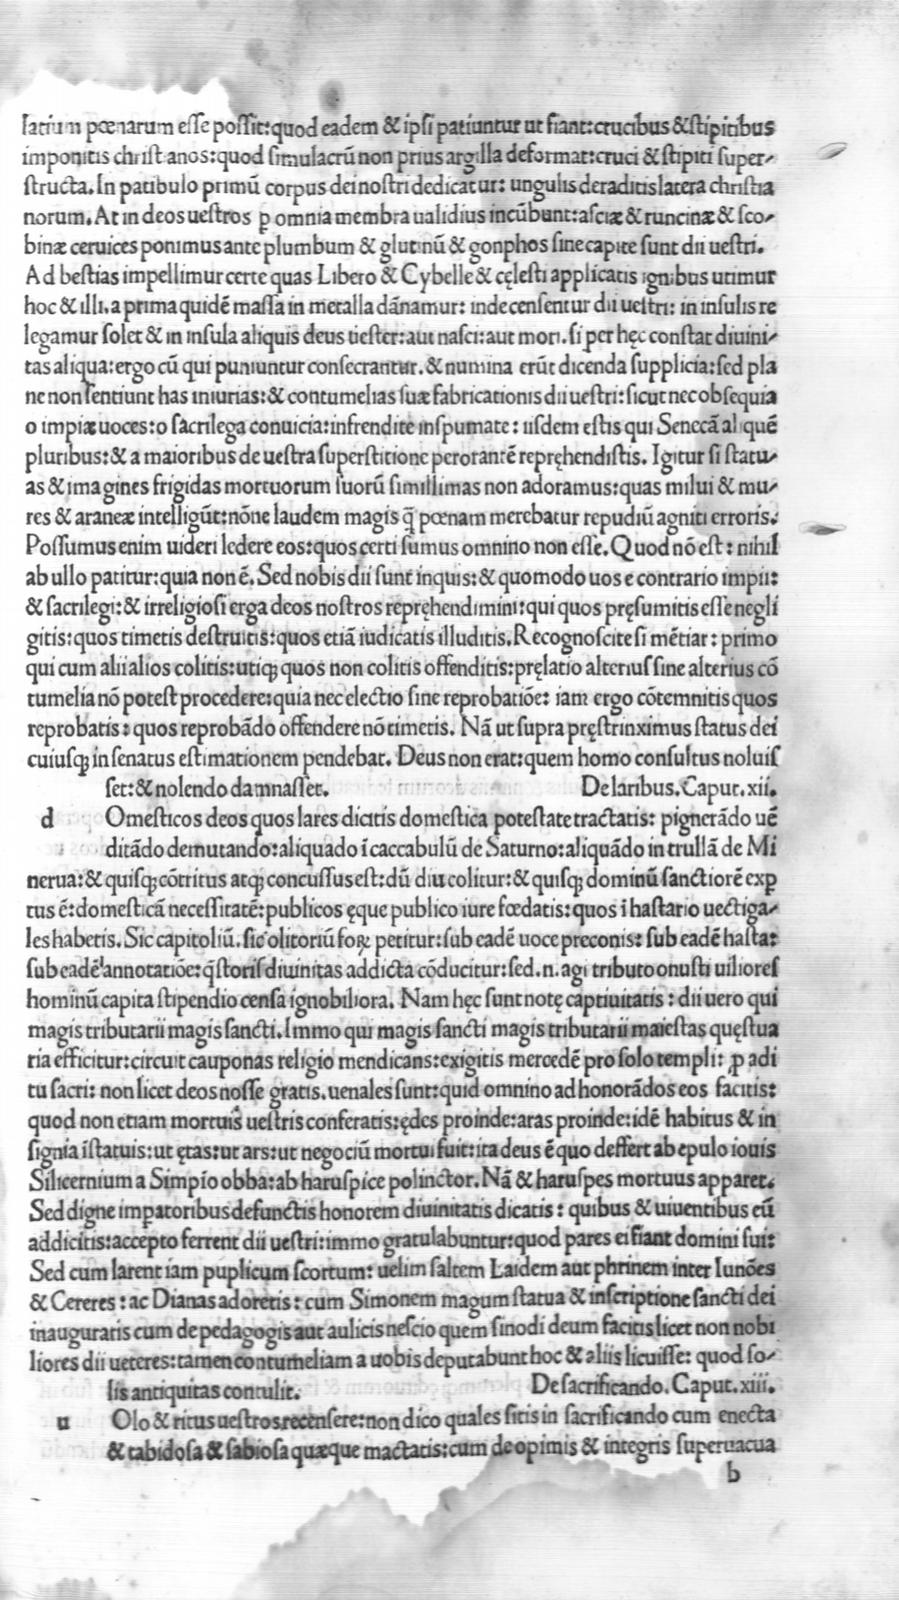 latium pœnarum esse possit:quod eadem & ipsi patiuntur ut fiant:crucibus &stipitibus
imponitis christianos:quod simulacrũ non prius argilla deformat:cruci & stipiti super-
structa.In patibulo primũ corpus dei nostri dedicatur: ungulis deraditis latera christia
norum.At in deos uestros ꝑ omnia membra ualidius incũbunt:asciæ & runcinæ & sco-
binæ ceruices ponimus ante plumbum & glutinũ & gonphos sine capite sunt dii uestri.
Ad bestias impellimur certe quas Libero & Cybelle & cęlesti applicatis ignibus urimur
hoc & illi.a prima quidẽ massa in metalla dãnamur: inde censentur dii uestri: in insulis re
legamur solet & in insula aliquis deus uester:aut nasci:aut mori.si per hęc constat diuini-
tas aliqua:ergo cũ qui puniuntur consecrantur.& numina erũt dicenda supplicia:sed pla
ne non sentiunt has iniurias:& contumelias suæ fabricationis dii uestri:sicut nec obsequia
o impiæ uoces:o sacrilega conuicia:infrendite inspumate: iisdem estis qui Senecã aliquẽ
pluribus:& a maioribus de uestra superstitione perorantẽ repręhendistis. Igitur si statu-
as & imagines frigidas mortuorum suorũ simillimas non adoramus:quas milui & mu-
res & araneæ intelligũt:nõne laudem magis q̃ pœnam merebatur repudiũ agniti erroris.
Possumus enim uideri ledere eos:quos certi sumus omnino non esse.Quod nõ est: nihil
ab ullo patitur:quia non ẽ.Sed nobis dii sunt inquis:& quomodo uos e contrario impii:
& sacrilegi:& irreligiosi erga deos nostros repręhendimini:qui quos pręsumitis esse negli
gitis:quos timetis destruitis:quos etiã iudicatis illuditis.Recognoscite si mẽtiar: primo
qui cum alii alios colitis:utiqꝫ quos non colitis offenditis:pręlatio alterius sine alterius cõ
tumelia nõ potest procedere:quia nec electio sine reprobatiõe: iam ergo cõtemnitis quos
reprobatis: quos reprobãdo offendere nõ timetis. Nã ut supra pręstrinximus status dei
cuiusqꝫ in senatus estimationem pendebat. Deus non erat:quem homo consultus noluis
set:& nolendo damnasset. De laribus. Caput.xii.
d Omesticos deos quos lares dicitis domestica potestate tractatis: pignerãdo uẽ
ditãdo demutando:aliquãdo ĩ caccabulũ de Saturno:aliquãdo in trullã de Mi
nerua:& quisqꝫ cõtritus atqꝫ concussus est:dũ diu colitur:& quisqꝫ dominũ sanctiorẽ exꝑ
tus ẽ:domesticã necessitatẽ:publicos ęque publico iure fœdatis:quos ĩ hastario uectiga-
les habetis.Sic capitoliũ.sic olitoriũ foꝝ petitur:sub eadẽ uoce preconis: sub eadẽ hasta:
sub eadẽ annotatiõe:q̃storis diuinitas addicta cõducitur:sed.n.agi tributo onusti uiliores
hominũ capita stipendio censa ignobiliora. Nam hęc sunt notę captiuitatis: dii uero qui
magis tributarii magis sancti.Immo qui magis sancti magis tributarii maiestas quęstua
ria efficitur:circuit cauponas religio mendicans:exigitis mercedẽ pro solo templi: ꝓ adi
tu sacri: non licet deos nosse gratis.uenales sunt:quid omnino ad honorãdos eos facitis:
quod non etiam mortuis uestris conferatis:ędes proinde:aras proinde:idẽ habitus & in
signia ĩ statuis:ut ętas:ut ars:ut negociũ mortui fuit:ita deus ẽ quo deffert ab epulo iouis
Silicernium a Simpio obba:ab haruspice polinctor.Nã & haruspes mortuus apparet.
Sed digne imperatoribus defunctis honorem diuinitatis dicatis: quibus & uiuentibus eũ
addicitis:accepto ferrent dii uestri:immo gratulabuntur:quod pares ei fiant domini sui:
Sed cum larentiam puplicum scortum: uelim saltem Laidem aut phrinem inter Iunões
& Cereres: ac Dianas adoretis: cum Simonem magum statua & inscriptione sancti dei
inauguratis cum de pedagogis aut aulicis nescio quem sinodi deum facitis licet non nobi
liores dii ueteres:tamen contumeliam a uobis deputabunt hoc & aliis licuisse: quod so-
lis antiquitas contulit. De sacrificando. Caput.xiii.
u Olo & ritus uestros recensere:non dico quales sitis in sacrificando cum enecta
& tabidosa & sabiosa quæque mactatis:cum de opimis & integris superuacua
b